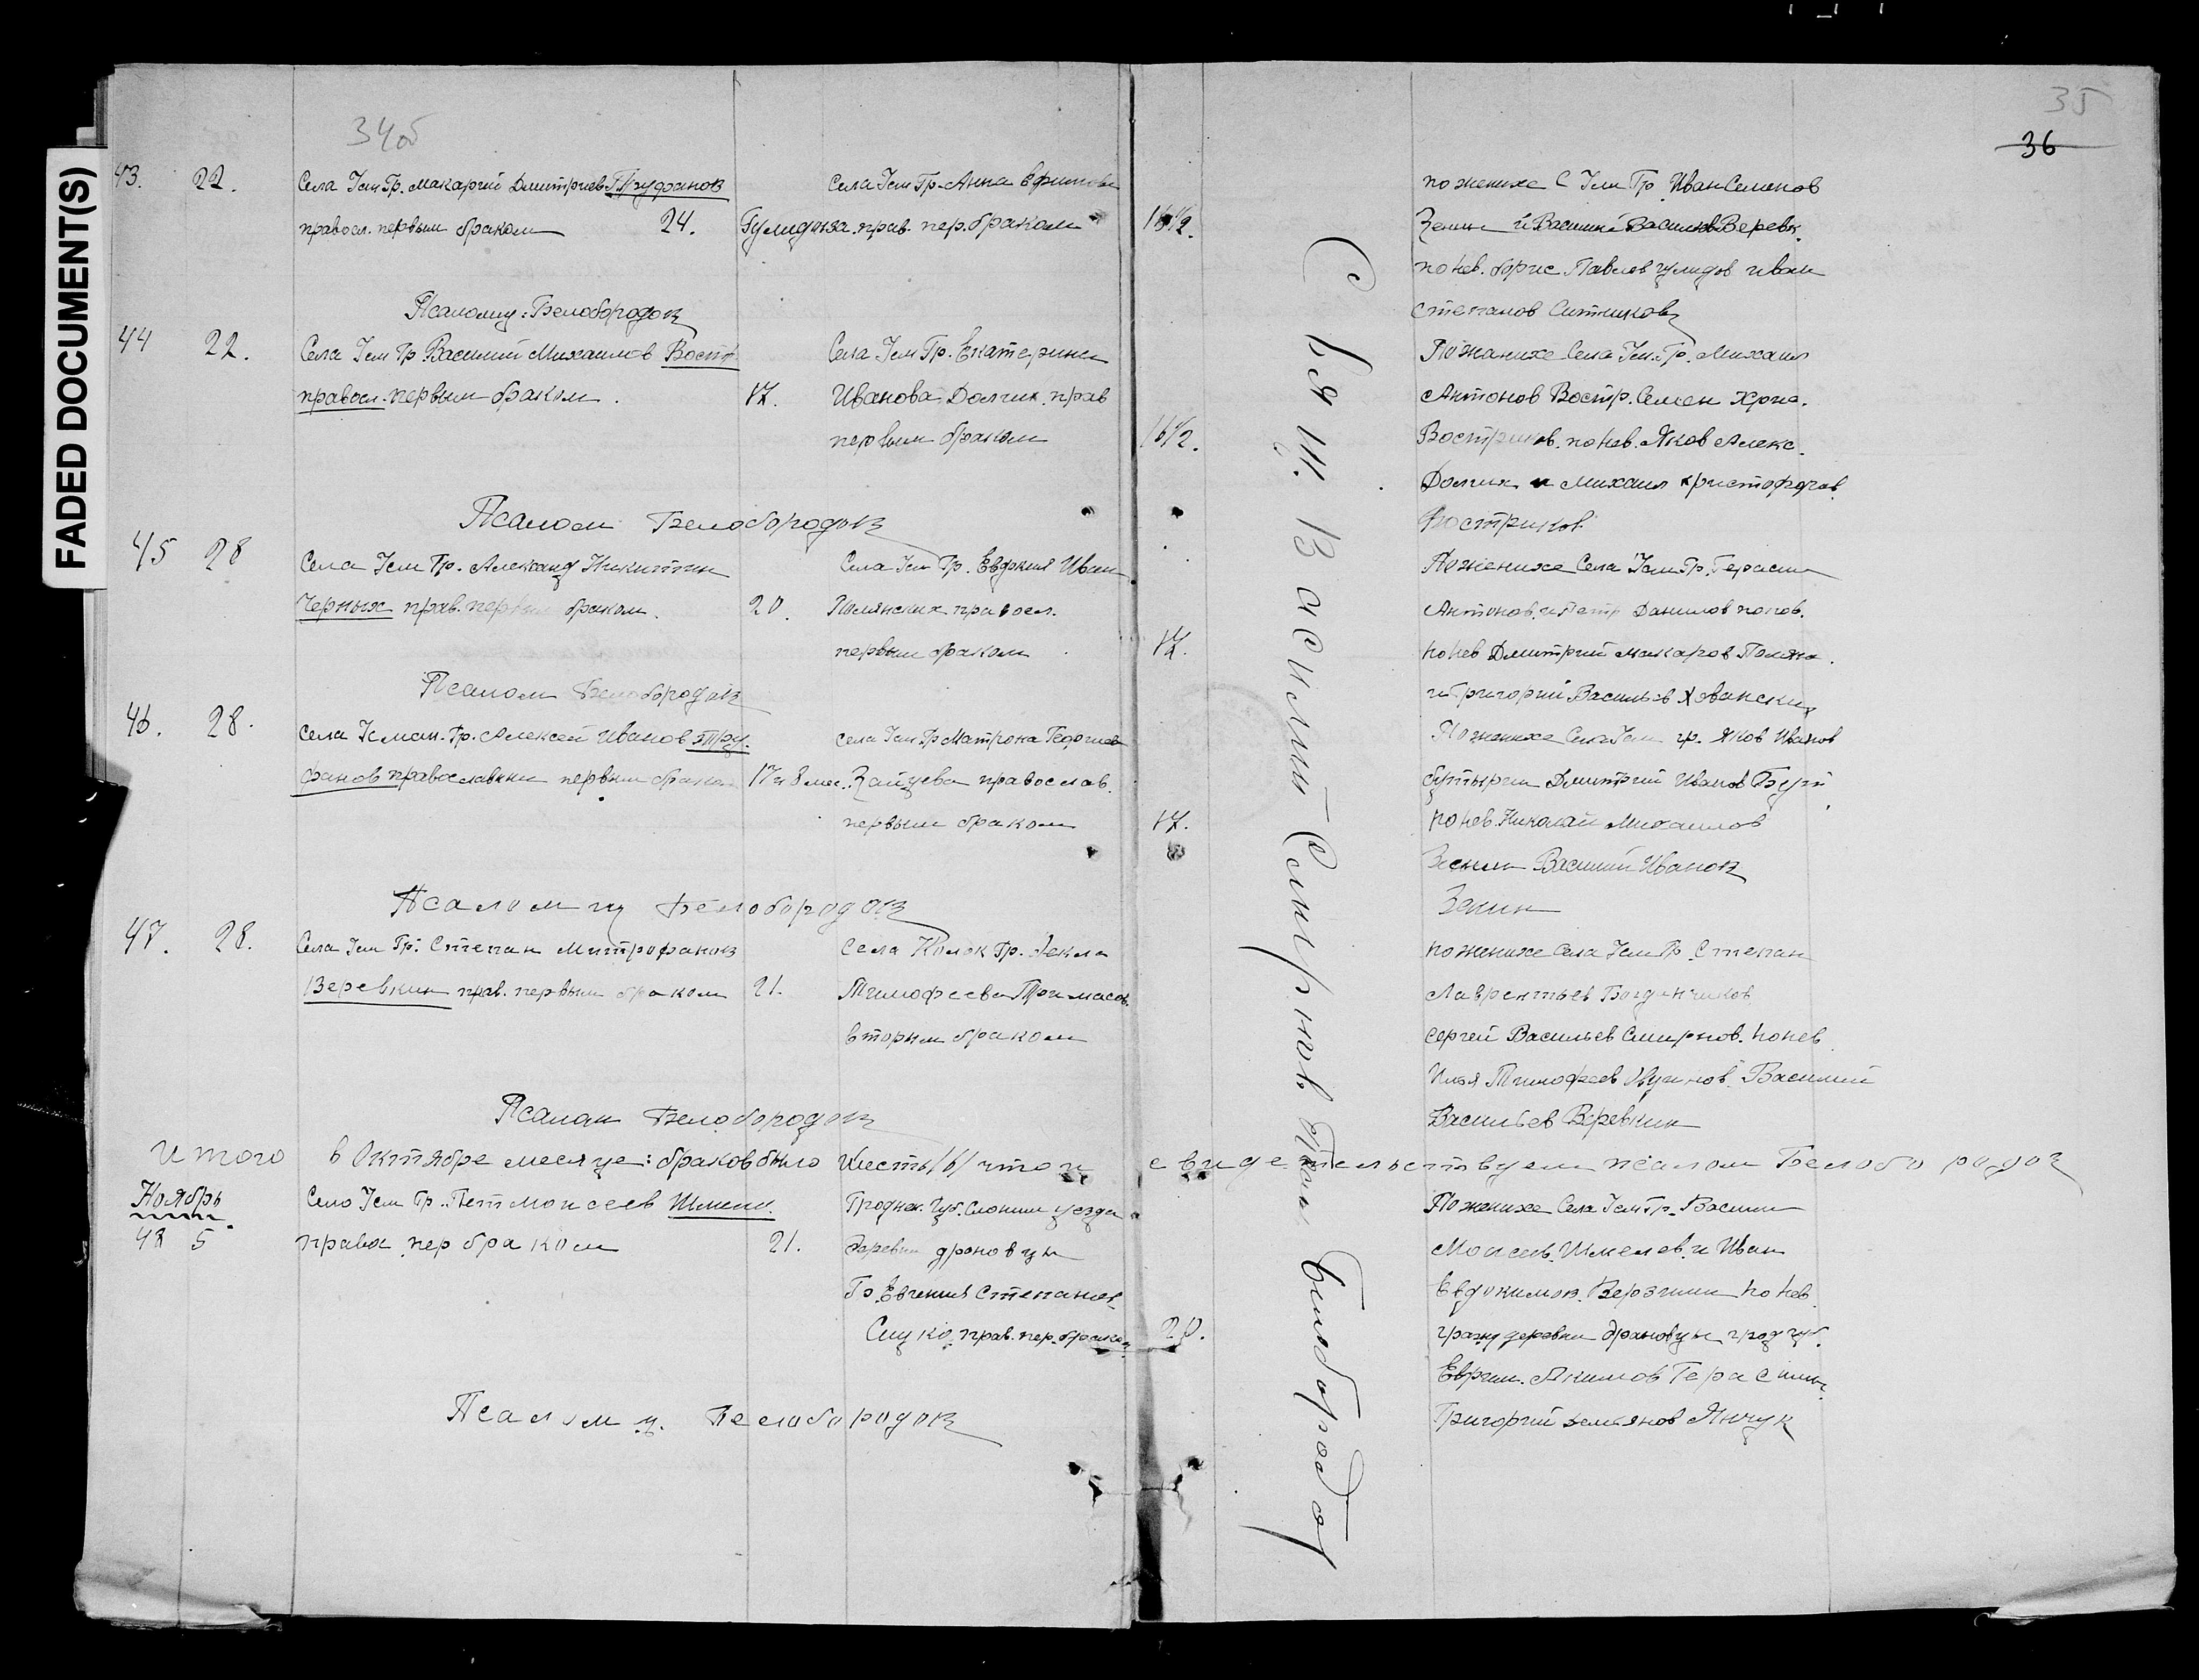 FADED DOCUMENT(S)
34об
43. 22. Села Усм Гр. Макарий Дмитриев Труфанов
правосл. первым браком 24.
Села Усм Гр. Анна Ефимова
Гулидова прав. пер. браком 16 1/2.
по женихе С Усм Гр Иван Семенов
Зенин и Василий Васильев Веревк.
по нев. борис Павлов гулидов иван
степанов Ситников
Псаломщ: Белобородов
44 22. Села Усм Гр Василий Михаилов Востр
правосл. первым браком. 17.
Села Усм Гр. Екатерина
Иванова Долгих. прав
первым браком 16 1/2.
По женихе Села Усм. Гр. Михаил
Антонов Востр. Семен Хрис.
Востриков. по нев. Яков Алекс.
Долгих и Михаил христофоров
Востриков
Псалом Белобородов
45 28 Села Усм Гр. Александ Никитин
Черных прав. первым браком. 20.
Села Усм Гр. Евдокия Иван
Полянских правосл.
первым браком 17.
По женихе Села Усм Гр. Герасим
Антонов. и Петр Данилов попов.
по нев Дмитрий Макаров Поляна.
и Григорий Васильев Хованских
Псалом Белобородов
46. 28. Села Усман. Гр. Алексей Иванов Тру.
фанов православный первым браком 17 и 8 мес.
села Усм Гр Матрона Георгиев
Зайцева православ.
первым браком 17.
По женихе Села Усм гр. Яков Иванов
бутырин Дмитрий Иванов Бут
по нев. Николай Михаилов
Зенин Василий Иванов
Зенин
Псаломщ Белобородов
47. 28. Села Усм Гр: Степан Митрофанов
Веревкин прав. первым браком 21.
Села Колок Гр. Фекла
Тимофеева Тримасов.
вторым браком
по женихе Села Усм Гр Степан
Лаврентьев Богданчиков
сергей Васильев Смирнов. по нев
Илья Тимофеев Василий
Васильев Веревкин
Псалом Белобородов
Итого в Октябре месяце: браков было Шесть /6/ что и свидетельствуем псалом Белобородов
Ноябрь
48 5 Село Усм Гр. Петр Моисеев Шмел.
правсл пер браком 21.
Гроднен. Губ. Слоним уезда
Деревни дроновцы
Гр. Евгения Степанов
Слуко прав. пер. браком 20.
По женихе Села Усм Гр. Василий
Моисеев. Шмелев. и Иван
Евдокимов. по нев
гражд деревни дроновцы грод губ.
Акимов Герасим
Григорий Демьянов Янчук
Псаломщ. Белобородов
Свящ. Василий Смирнов
Псал. Белобородов
35
36